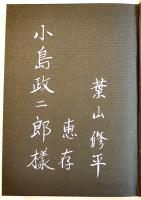 葉山修平
惠存
小島政二郎樣